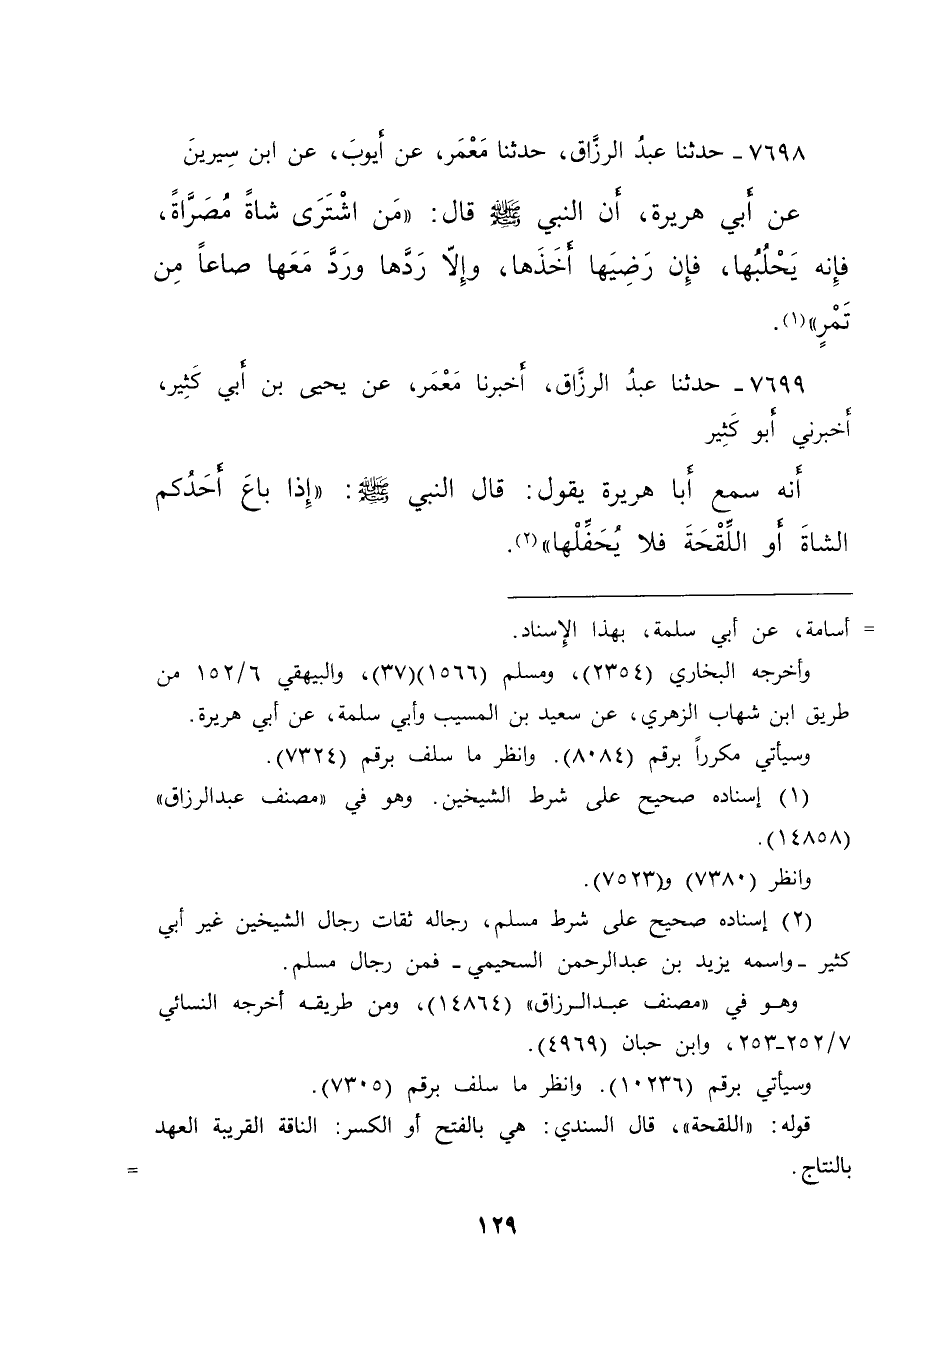 ٧٦٩٨ـ حدثنا عبدُ الرزَّاق، حدثنا مَعْمَر، عن أَيوبَ، عن ابن سِيرينَ
عن أَبي هريرة، أَن النبي ﷺ قال: «مَن اشْتَرَى شاةً مُصَرَّاةً،
فإِنه يَحْلُبُها، فإِن رَضِيَها أَخَذَها، وإِلّا رَدَّها ورَدَّ مَعَها صاعاً مِن
تَمْرٍ»(١).
٧٦٩٩ـ حدثنا عبدُ الرزَّاق، أَخبرنا مَعْمَر، عن يحيى بن أَبي كَثِير،
أَخبرني أَبو كَثِير
أَنه سمع أَبا هريرة يقول: قال النبي ﷺ: «إِذا باعَ أَحَدُكم
الشاةَ أَو اللِّقْحَةَ فلا يُحَفِّلْها»(٢).
= أسامة، عن أبي سلمة، بهذا الإِسناد.
وأخرجه البخاري (٢٣٥٤)، ومسلم (١٥٦٦)(٣٧)، والبيهقي ١٥٢/٦ من
طريق ابن شهاب الزهري، عن سعيد بن المسيب وأبي سلمة، عن أبي هريرة.
وسيأتي مكرراً برقم (٨٠٨٤). وانظر ما سلف برقم (٧٣٢٤).
(١) إسناده صحيح على شرط الشيخين. وهو في «مصنف عبدالرزاق»
(١٤٨٥٨).
وانظر (٧٣٨٠) و(٧٥٢٣).
(٢) إسناده صحيح على شرط مسلم، رجاله ثقات رجال الشيخين غير أبي
كثير ـ واسمه يزيد بن عبدالرحمن السحيمي ـ فمن رجال مسلم.
وهو في «مصنف عبدالرزاق» (١٤٨٦٤)، ومن طريقه أخرجه النسائي
٢٥٢/٧ـ٢٥٣، وابن حبان (٤٩٦٩).
وسيأتي برقم (١٠٢٣٦). وانظر ما سلف برقم (٧٣٠٥).
قوله: «اللقحة»، قال السندي: هي بالفتح أو الكسر: الناقة القريبة العهد
بالنتاج. =
١٢٩